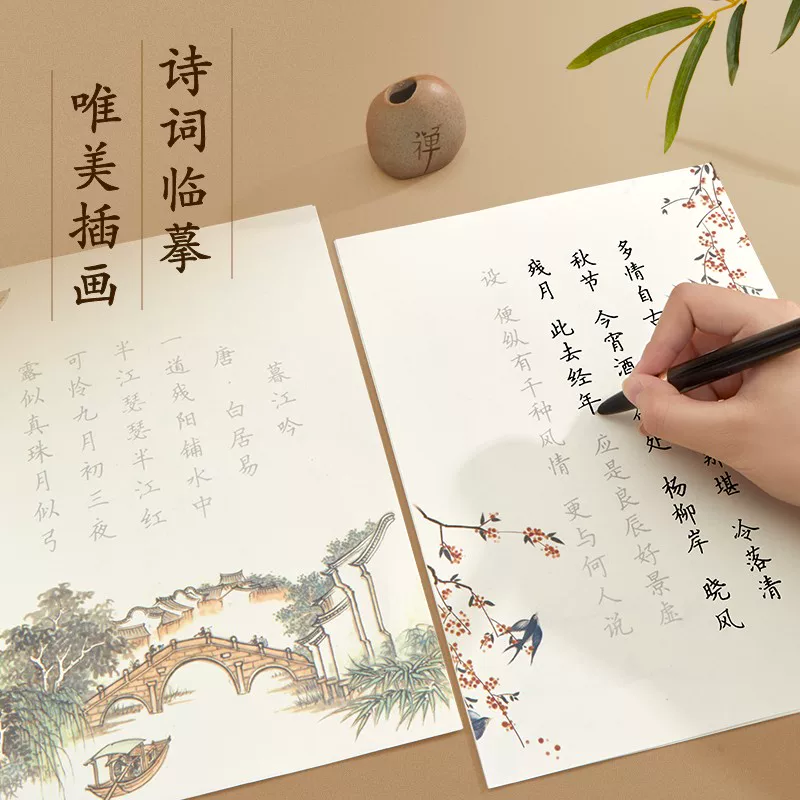 诗词临摹
唯美插画
禪
多情自古 堪 冷落清
秋节 今宵酒 处 杨柳岸 晓风
残月 此去经年 应是良辰好景虚
设 便纵有千种风情 更与何人说
暮江吟
唐·白居易
一道残阳铺水中
半江瑟瑟半江红
可怜九月初三夜
露似真珠月似弓